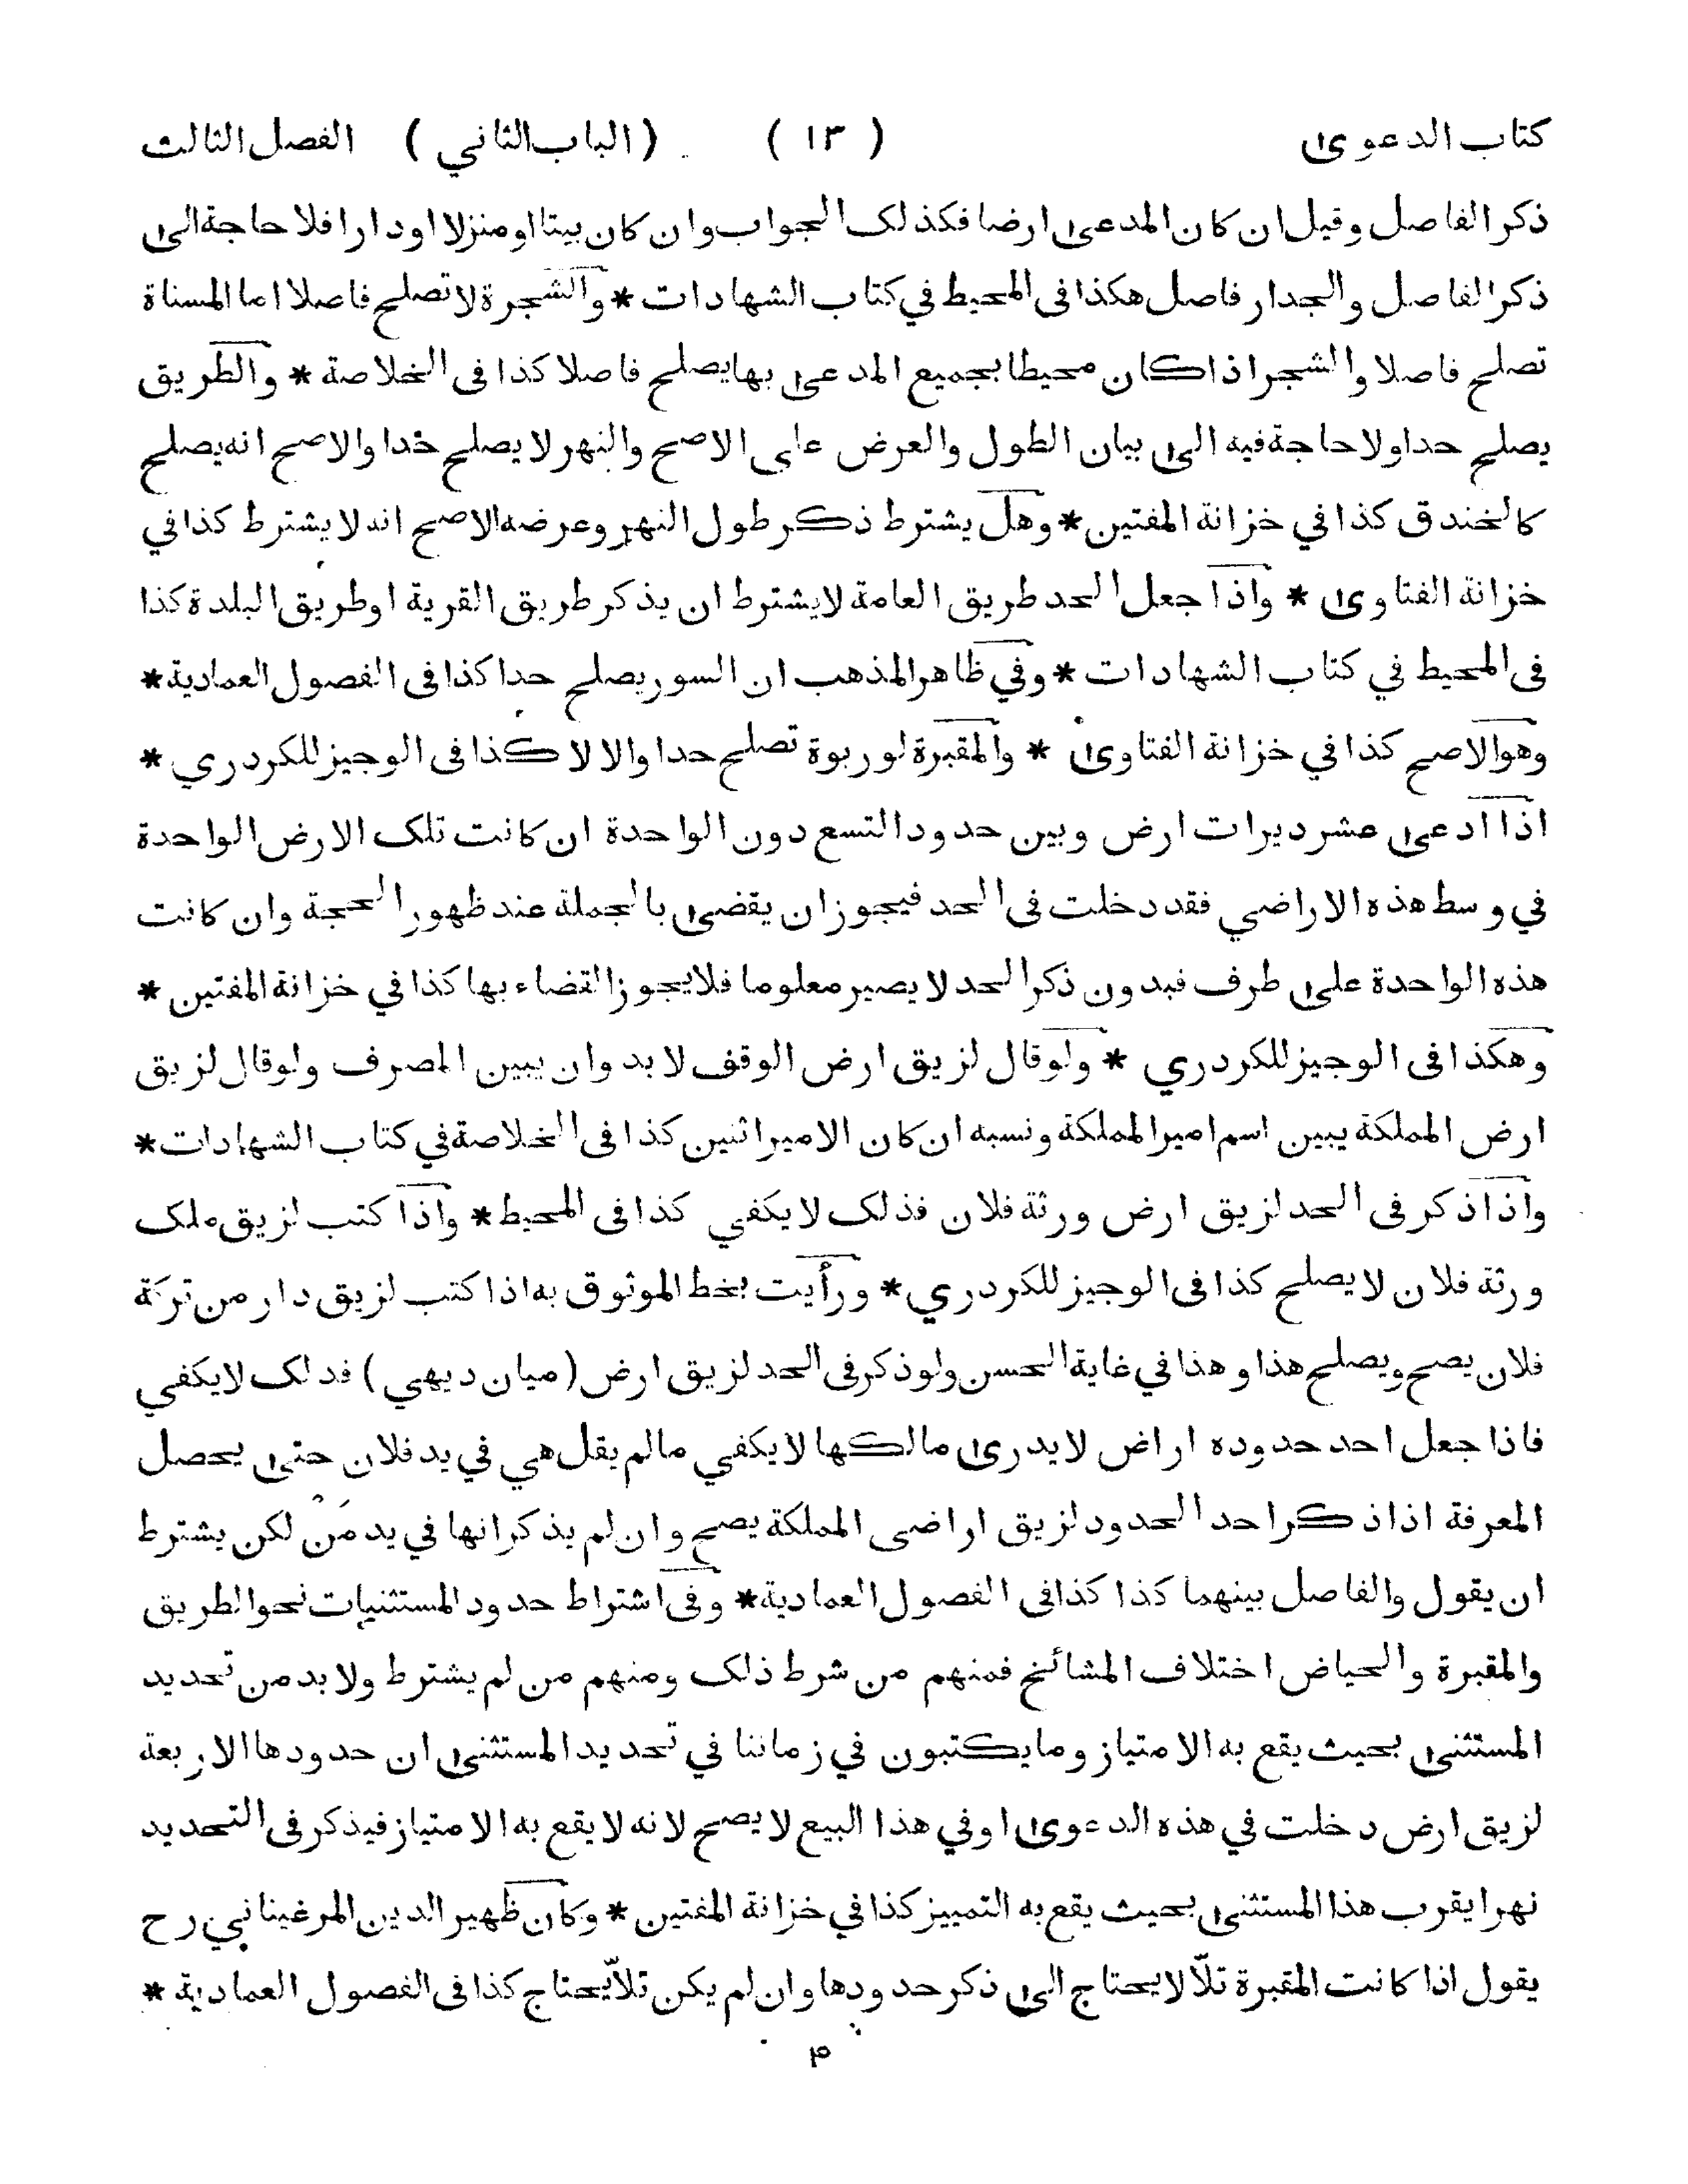 كتاب الدعوى ( ١٣ ) ( الباب الثاني ) الفصل الثالث
ذكر الفاصل وقيل ان كان المدعى ارضا فكذلك الجواب وان كان بيتا او منزلا او دارا فلا حاجة الى
ذكر الفاصل والجدار فاصل هكذا فى المحيط في كتاب الشهادات * والشجرة لا تصلح فاصلا اما المسناة
تصلح فاصلا والشجر اذا كان محيطا بجميع المدعى بها يصلح فاصلا كذا فى الخلاصة * والطريق
يصلح حدا ولا حاجة فيه الى بيان الطول والعرض على الاصح والنهر لا يصلح حدا والاصح انه يصلح
كالخندق كذا في خزانة المفتين * وهل يشترط ذكر طول النهر وعرضه الاصح انه لا يشترط كذا في
خزانة الفتاوى * واذا جعل الحد طريق العامة لا يشترط ان يذكر طريق القرية او طريق البلدة كذا
فى المحيط في كتاب الشهادات * وفي ظاهر المذهب ان السور يصلح حدا كذا فى الفصول العمادية *
وهو الاصح كذا في خزانة الفتاوى * والمقبرة لو ربوة تصلح حدا والا لا كذا فى الوجيز للكردري *
اذا ادعى عشر ديرات ارض وبين حدود التسع دون الواحدة ان كانت تلك الارض الواحدة
في وسط هذه الاراضي فقد دخلت فى الحد فيجوز ان يقضى بالجملة عند ظهور الحجة وان كانت
هذه الواحدة على طرف فبدون ذكر الحد لا يصير معلوما فلا يجوز القضاء بها كذا في خزانة المفتين *
وهكذا فى الوجيز للكردري * ولو قال لزيق ارض الوقف لا بد وان يبين المصرف ولو قال لزيق
ارض المملكة يبين اسم امير المملكة ونسبه ان كان الامير اثنين كذا فى الخلاصة في كتاب الشهادات *
واذا ذكر فى الحد لزيق ارض ورثة فلان فذلك لا يكفي كذا فى المحيط * واذا كتب لزيق ملك
ورثة فلان لا يصلح كذا فى الوجيز للكردري * ورأيت بخط الموثوق به اذا كتب لزيق دار من تركة
فلان يصح ويصلح هذا وهذا في غاية الحسن ولو ذكر فى الحد لزيق ارض ( ميان ديهي ) فدلك لا يكفي
فاذا جعل احد حدوده اراض لا يدرى مالكها لا يكفي مالم يقل هي في يد فلان حتى يحصل
المعرفة اذا ذكر احد الحدود لزيق اراضى المملكة يصح وان لم يذكر انها في يد مَنْ لكن يشترط
ان يقول والفاصل بينهما كذا كذا فى الفصول العمادية * وفى اشتراط حدود المستثنيات نحو الطريق
والمقبرة والحياض اختلاف المشائخ فمنهم من شرط ذلك ومنهم من لم يشترط ولا بد من تحديد
المستثنى بحيث يقع به الامتياز وما يكتبون في زماننا في تحديد المستثنى ان حدودها الاربعة
لزيق ارض دخلت في هذه الدعوى او في هذا البيع لا يصح لانه لا يقع به الامتياز فيذكر فى التحديد
نهرا يقرب هذا المستثنى بحيث يقع به التمييز كذا في خزانة المفتين * وكان ظهير الدين المرغيناني رح
يقول اذا كانت المقبرة تلّا لا يحتاج الى ذكر حدودها وان لم يكن تلاّ يحتاج كذا فى الفصول العمادية *
۴